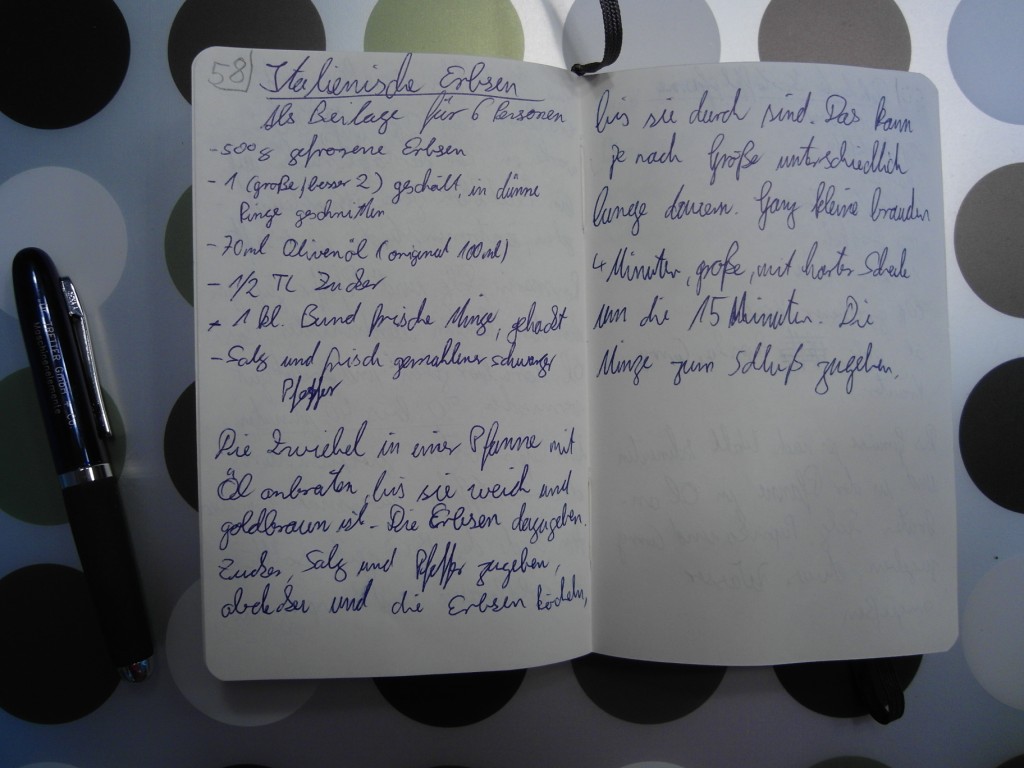 58
Italienische Erbsen
Als Beilage für 6 Personen
- 500g gefrorene Erbsen
- 1 (große/besser 2) geschält, in dünne
Ringe geschnitten
- 70ml Olivenöl (original 100ml)
- 1/2 TL Zucker
- 1 kl. Bund frische Minze, gehackt
- Salz und frisch gemahlener schwarzer
Pfeffer
Die Zwiebel in einer Pfanne mit
Öl anbraten, bis sie weich und
goldbraun ist. Die Erbsen dazugeben.
Zucker, Salz und Pfeffer zugeben,
abdecken und die Erbsen köcheln,
bis sie durch sind. Das kann
je nach Größe unterschiedlich
lange dauern. Ganz kleine brauchen
4 Minuten, große, mit harter Schale
um die 15 Minuten. Die
Minze zum Schluß zugeben.